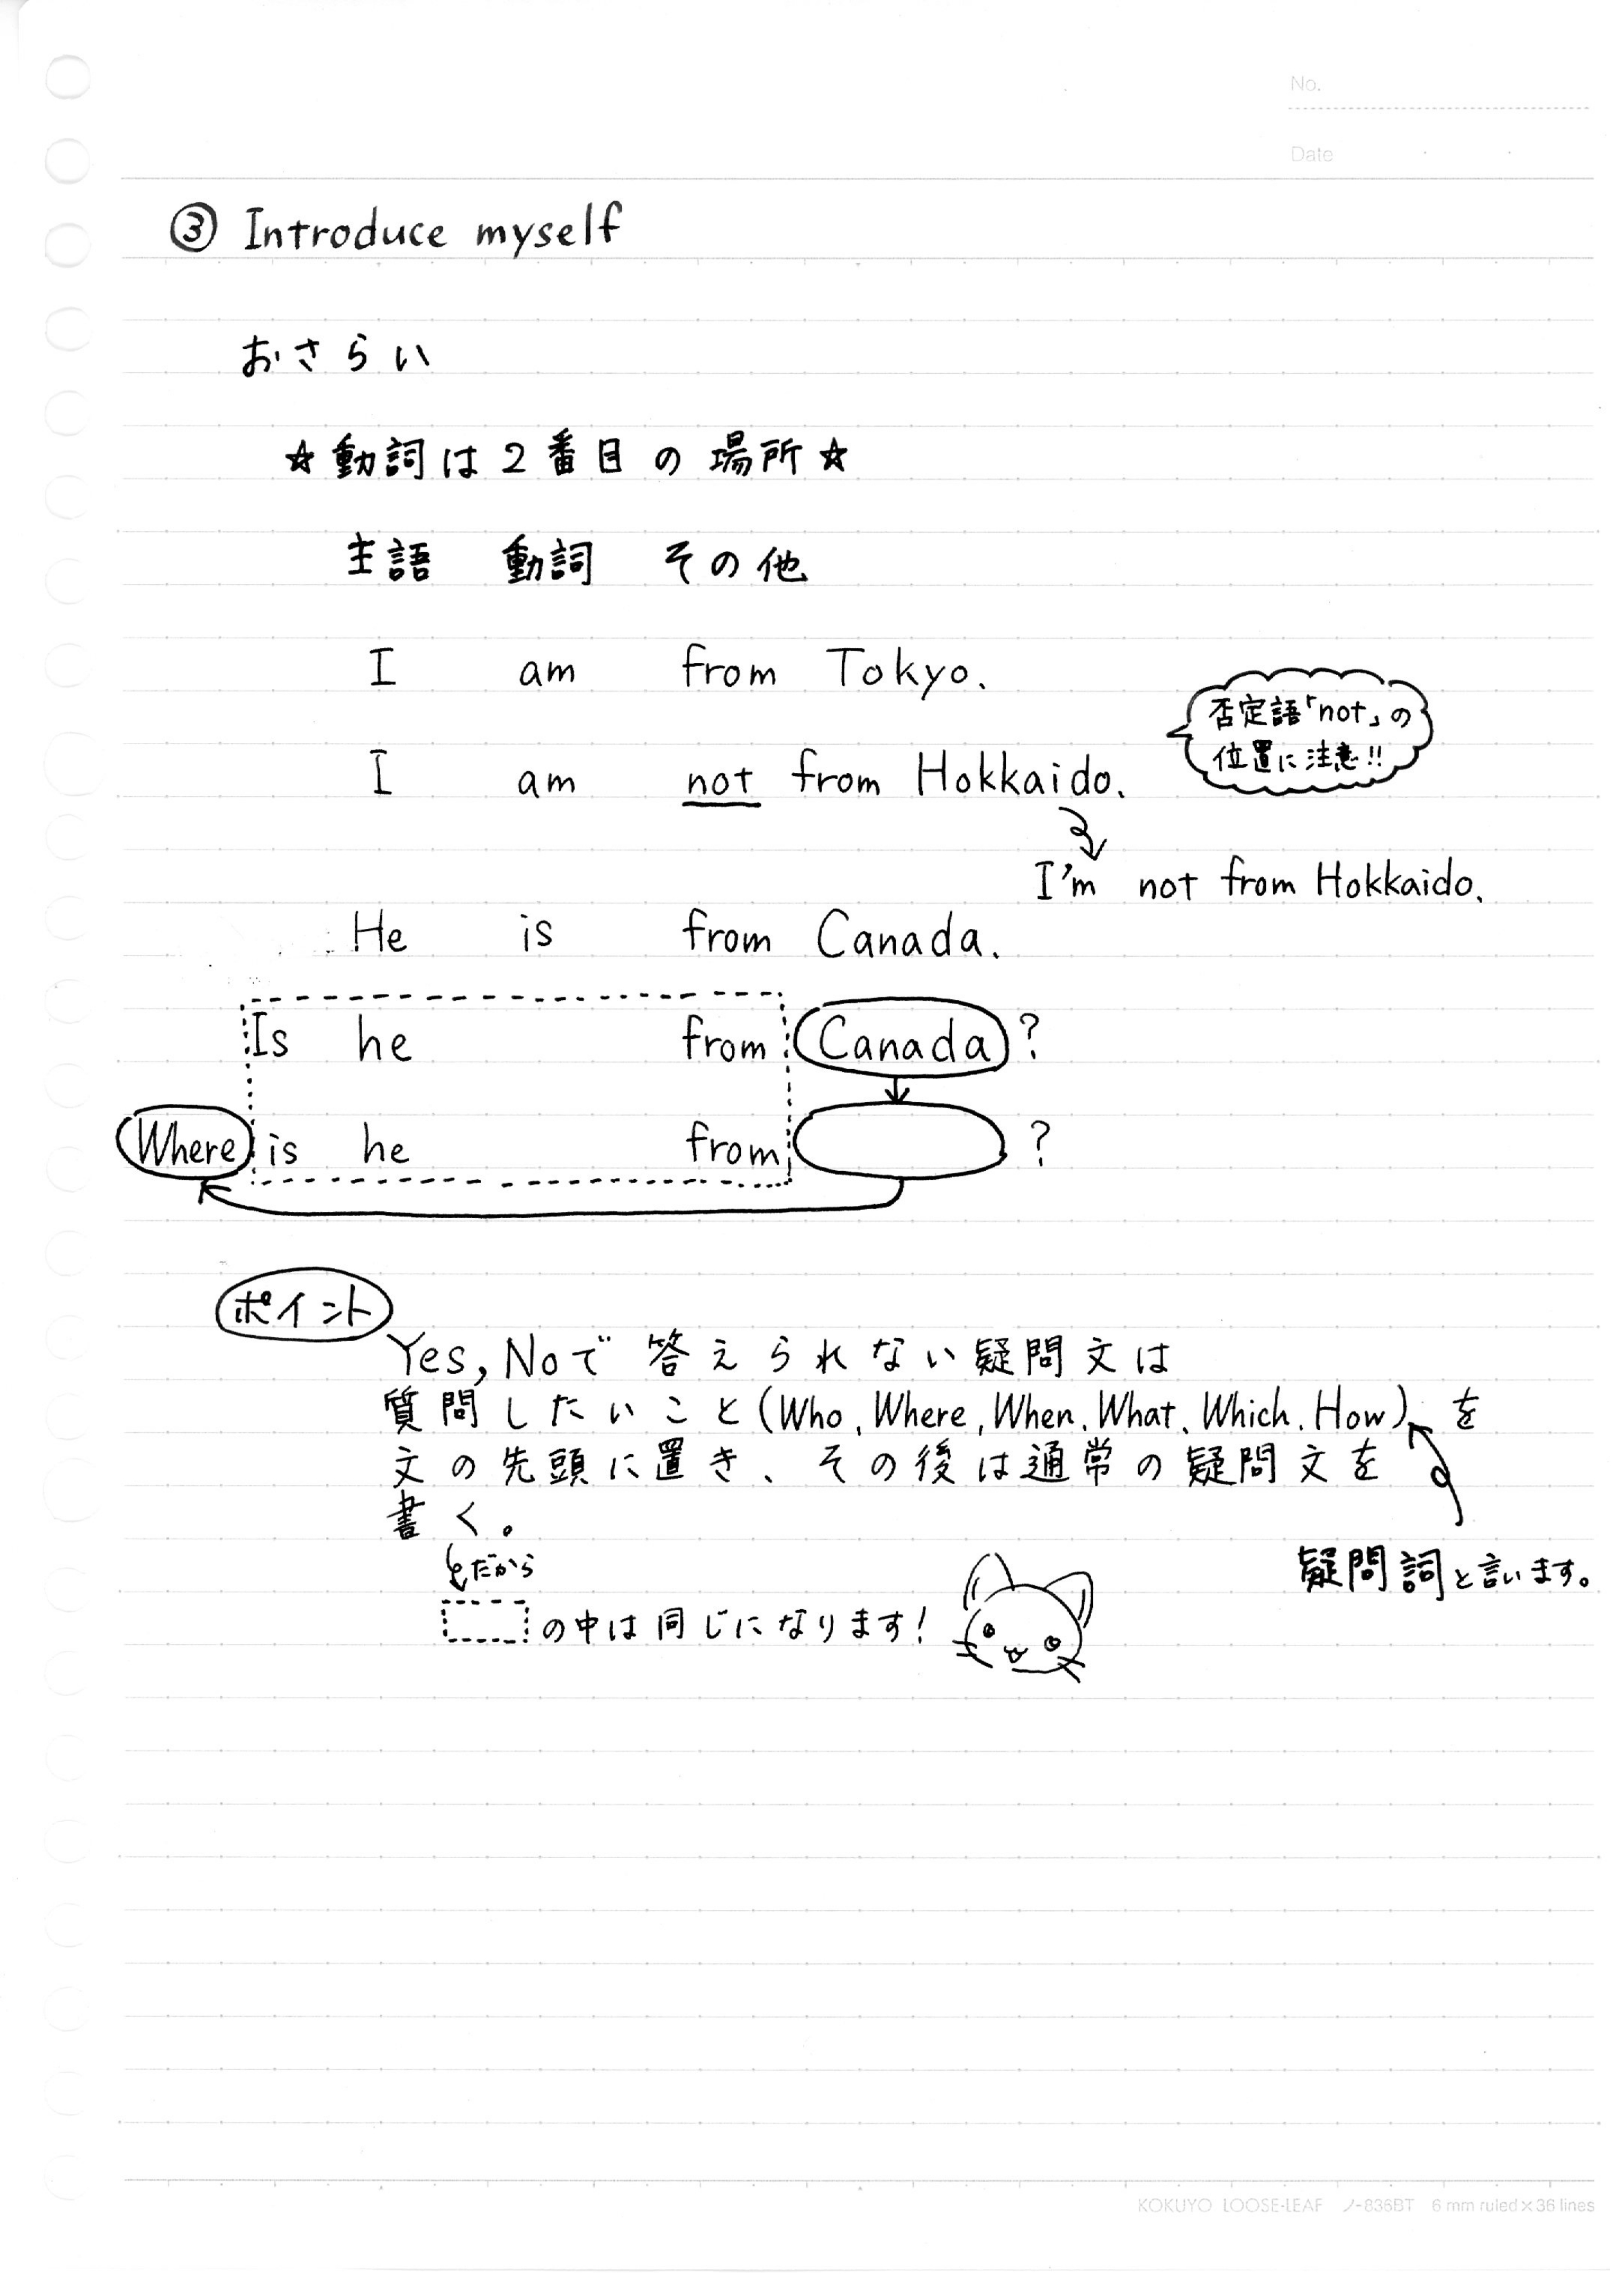 No.
Date
③ Introduce myself
おさらい
☆動詞は2番目の場所☆
主語 動詞 その他
I am from Tokyo.
否定語「not」の
位置に注意!!
I am not from Hokkaido.
I'm not from Hokkaido.
He is from Canada.
Is he from Canada?
Where is he from ?
ポイント
Yes, Noで答えられない疑問文は
質問したいこと(Who, Where, When, What, Which, How)を
文の先頭に置き、その後は通常の疑問文を
書く。
疑問詞と言います。
だから
の中は同じになります!
KOKUYO LOOSE-LEAF ノ-836BT 6 mm ruled×36 lines